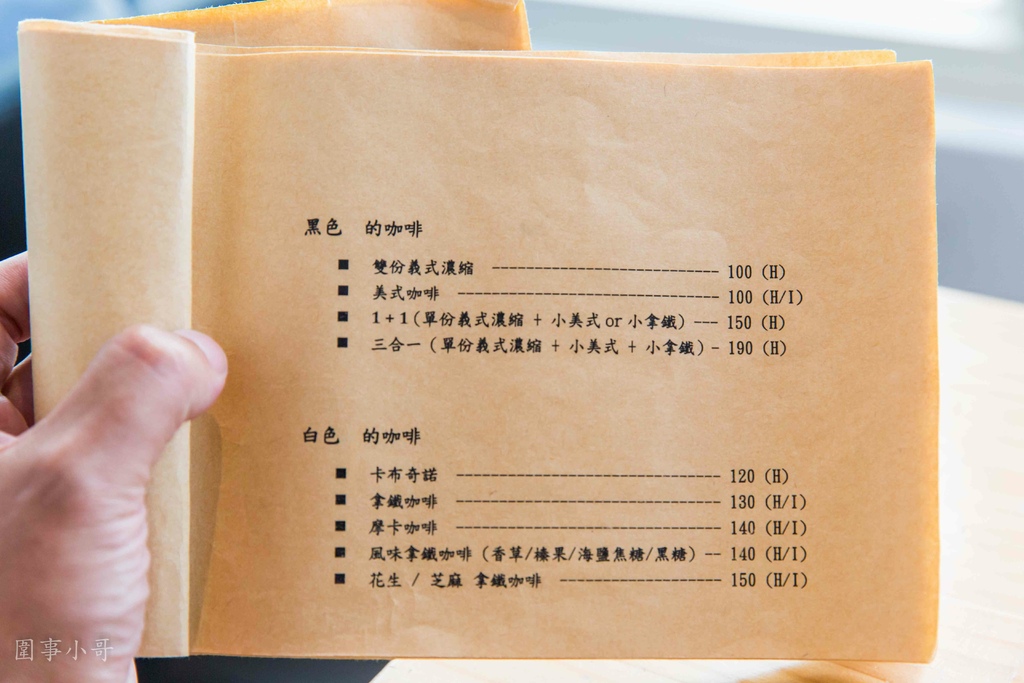 黑色 的咖啡
■ 雙份義式濃縮 --------------------------- 100 (H)
■ 美式咖啡 ------------------------------- 100 (H/I)
■ 1+1(單份義式濃縮 + 小美式or小拿鐵) --- 150 (H)
■ 三合一 (單份義式濃縮 + 小美式 + 小拿鐵) - 190 (H)
白色 的咖啡
■ 卡布奇諾 ------------------------------- 120 (H)
■ 拿鐵咖啡 ------------------------------- 130 (H/I)
■ 摩卡咖啡 ------------------------------- 140 (H/I)
■ 風味拿鐵咖啡 (香草/榛果/海鹽焦糖/黑糖) -- 140 (H/I)
■ 花生 / 芝麻 拿鐵咖啡 ------------------- 150 (H/I)
圍事小哥